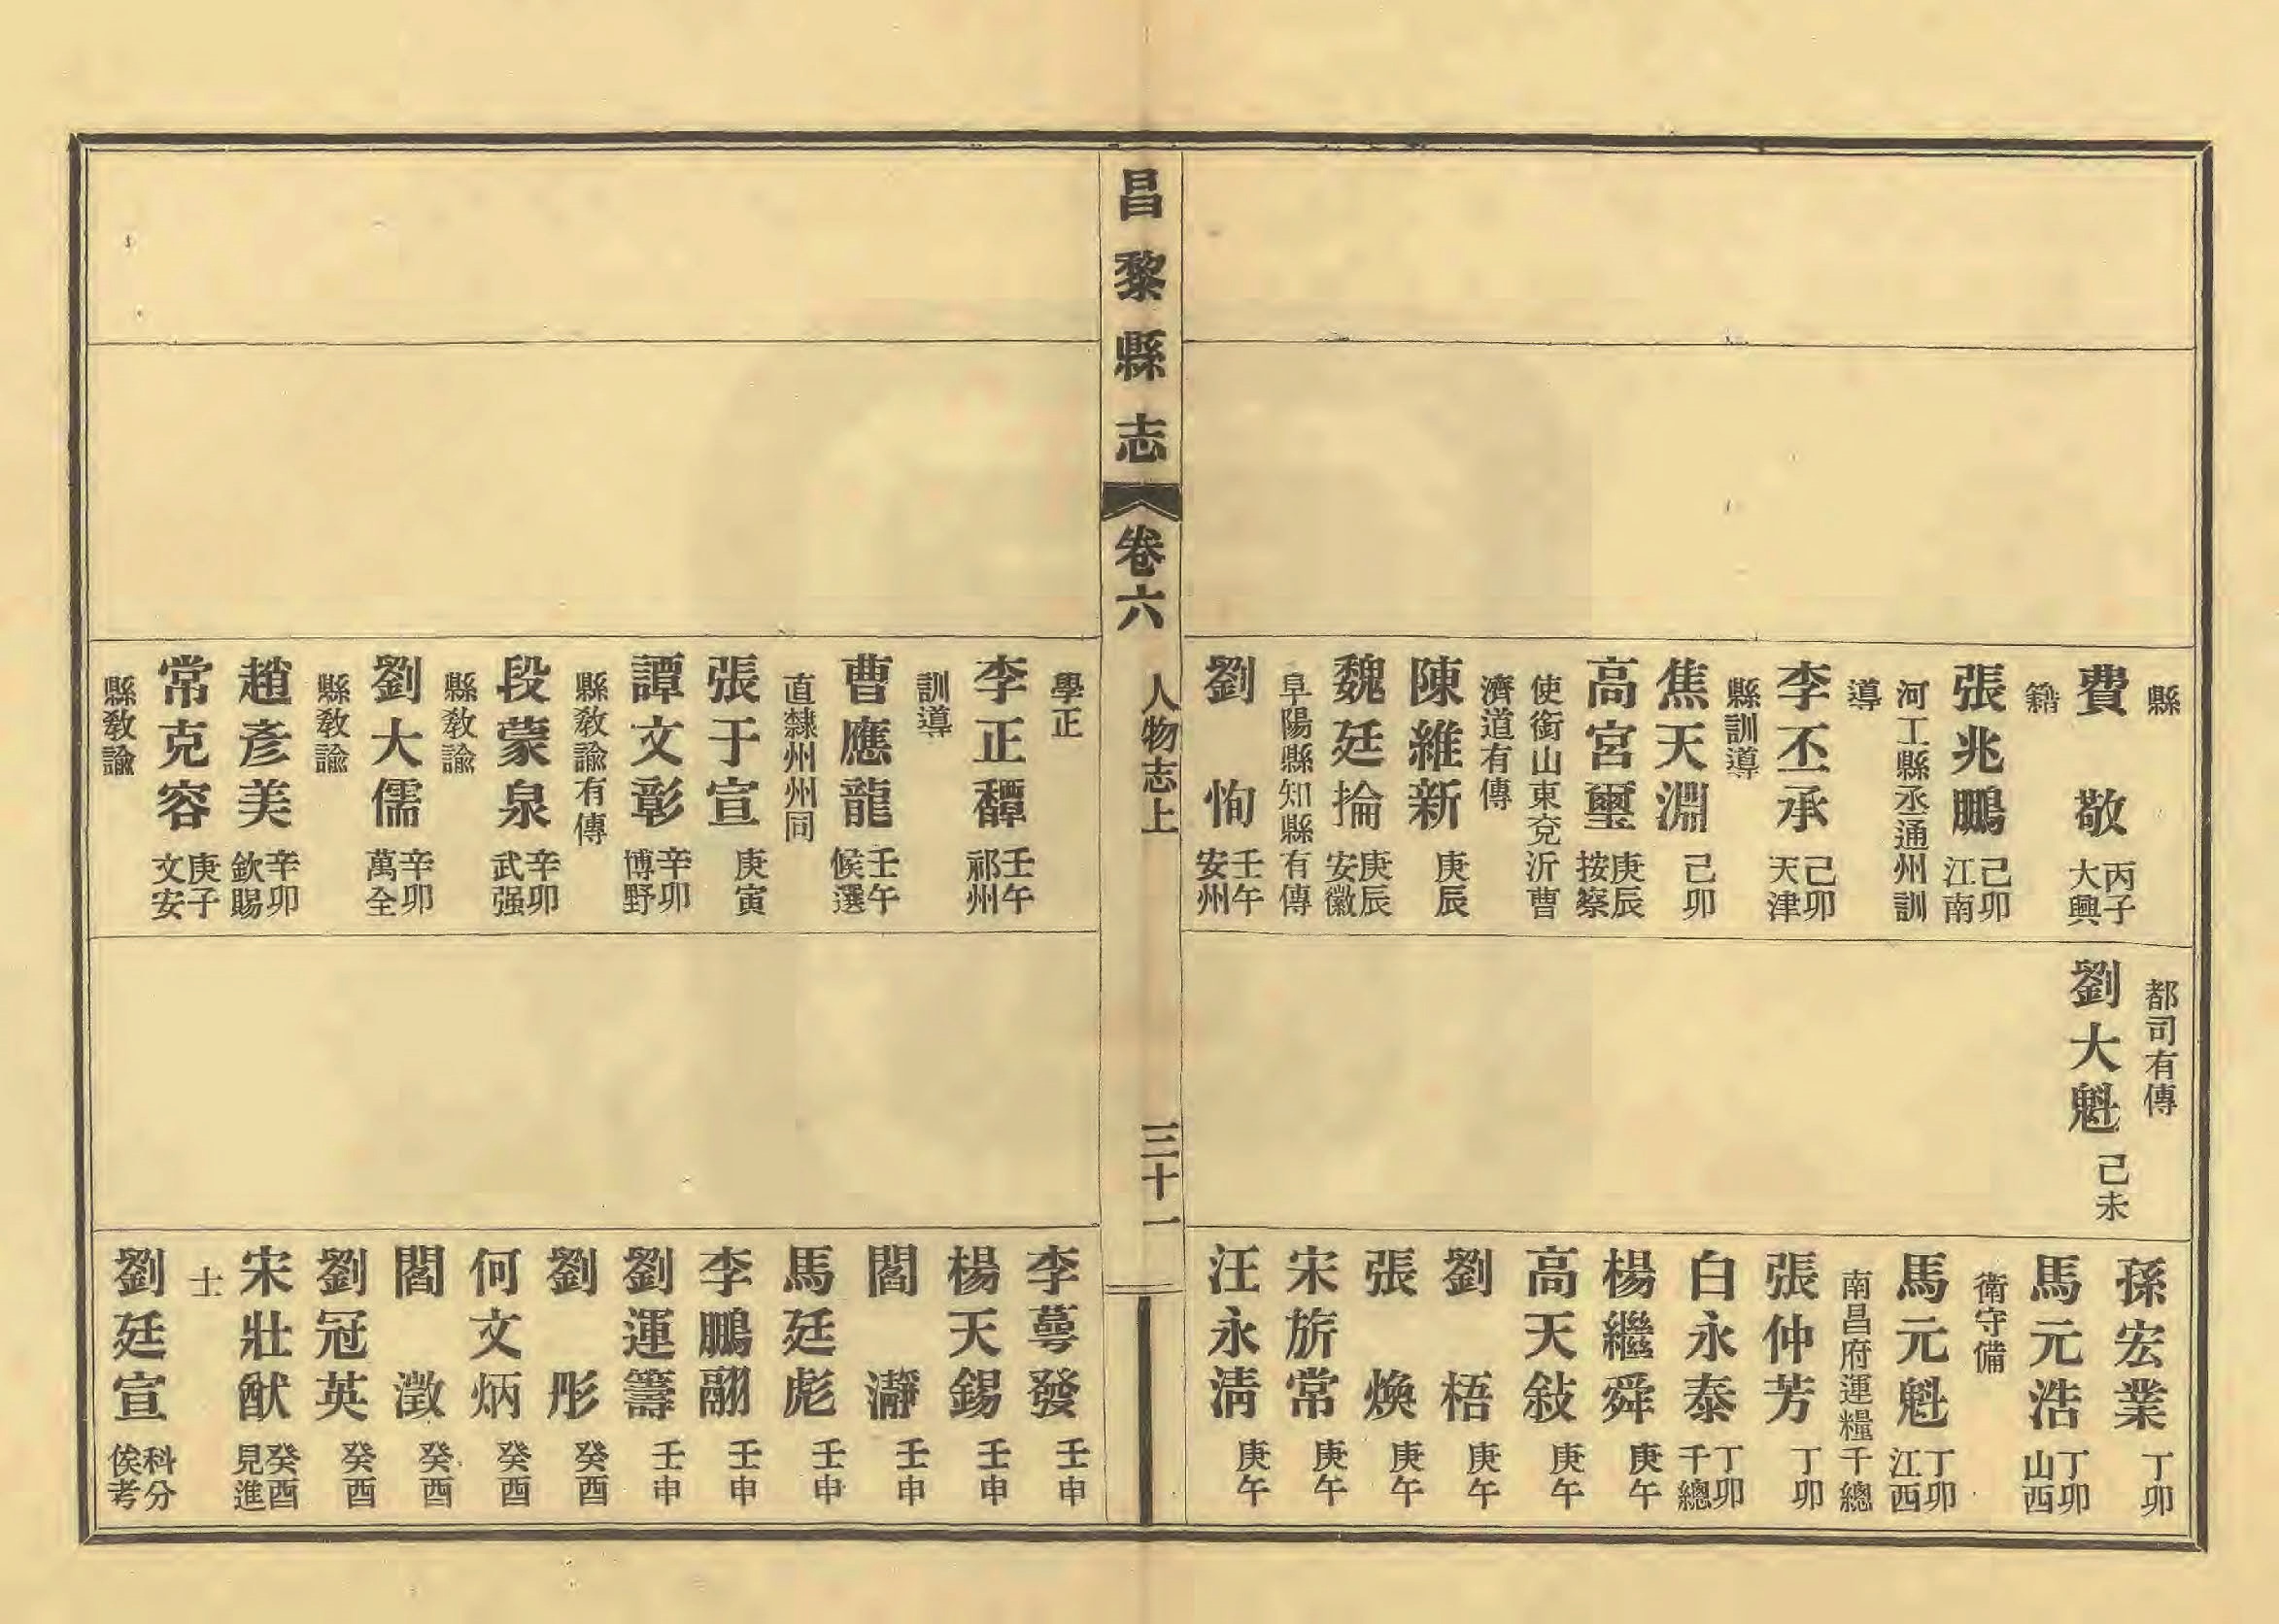 縣
費敬 丙子大興
籍
張兆鵬 己卯江南
河工縣丞通州訓
導
李丕承 己卯天津
縣訓導
焦天淵 己卯
高宮璽 庚辰按察
使銜山東兗沂曹
濟道有傳
陳維新 庚辰
魏廷掄 庚辰安徽
阜陽縣知縣有傳
劉恂 壬午安州
都司有傳
劉大魁 己未
孫宏業 丁卯
馬元浩 丁卯山西
衛守備
馬元魁 丁卯江西
南昌府運糧千總
張仲芳 丁卯
白永泰 丁卯千總
楊繼舜 庚午
高天敍 庚午
劉梧 庚午
張煥 庚午
宋旂常 庚午
汪永清 庚午
昌黎縣志 卷六 人物志上 三十一
學正
李正馥 壬午祁州
訓導
曹應龍 壬午候選
直隸州州同
張于宣 庚寅
譚文彰 辛卯博野
縣教諭有傳
段蒙泉 辛卯武强
縣教諭
劉大儒 辛卯萬全
縣教諭
趙彥美 辛卯欽賜
常克容 庚子文安
縣教諭
李蕚發 壬申
楊天錫 壬申
閻瀞 壬申
馬廷彪 壬申
李鵬翮 壬申
劉運籌 壬申
劉彤 癸酉
何文炳 癸酉
閻澂 癸酉
劉冠英 癸酉
宋壯猷 癸酉見進
士
劉廷宣 科分俟考